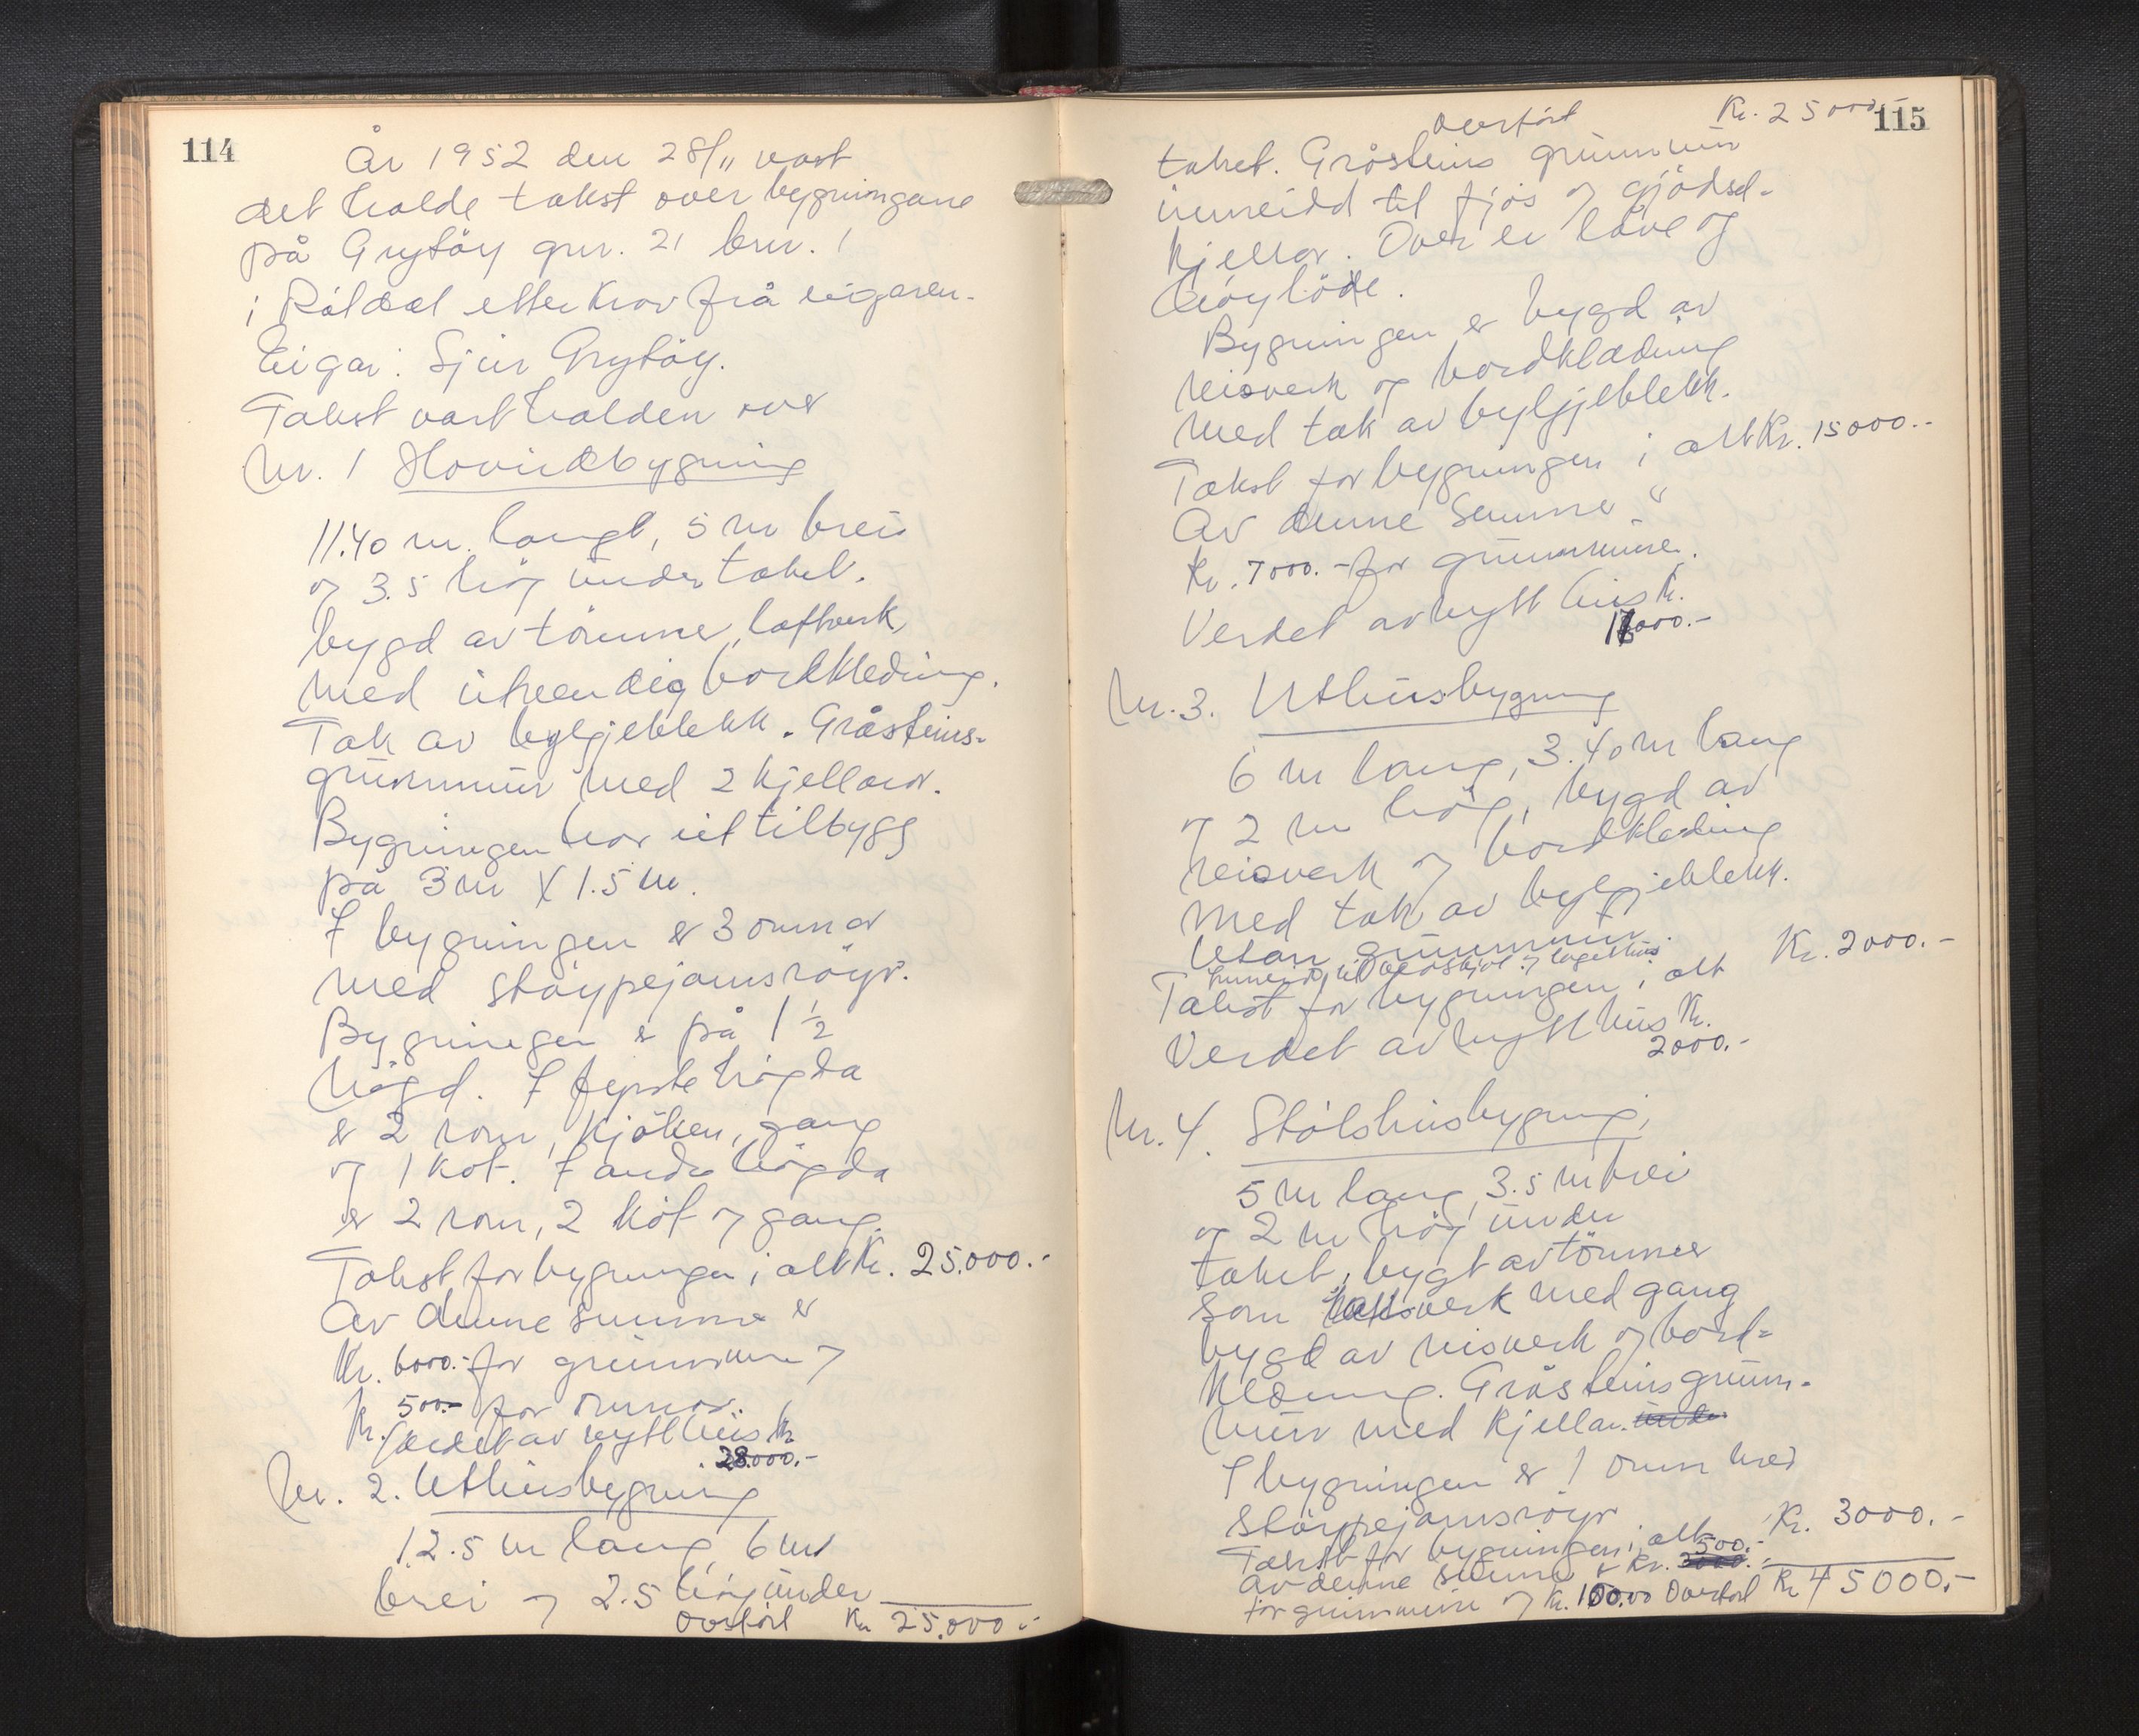 114
År 1952 den 28/11 vart
det halde takst over bygningane
på Grytöy gnr. 21 bnr. 1
i Röldal etter krav frå eigaren.
Eigar: Sjur Grytöy.
Takst vart halden over
Nr. 1 Hovudbygning
11.40 m. langt, 5 m brei
og 3.5 hög under taket.
bygd av tömmer, laftverk,
med utvendig bordkleding.
Tak av bylgjeblekk. Gråsteins-
grunnmur med 2 kjellarar.
Bygningen har eit tilbygg
på 3 m X 1.5 m.
I bygningen er 3 omnar
med stöypejarnsröyr.
Bygningen er på 1 1/2
högd. I fyrste högda
er 2 rom, kjöken, gang
og 1 kot. I andre högda
er 2 rom, 2 kot og gang.
Takst for bygningen i alt Kr. 25.000.-
Av denne summa er
Kr. 6000.- for grunnmur og
Kr. 500.- for omnar.
Verdet av nytt hus Kr.
28.000.-
Nr. 2. Uthusbygning
12.5 m lang, 6 m
brei og 2.5 hög under
Overfört Kr. 25.000.-
115
Overfört Kr. 25000.-
taket. Gråsteins grunnmur
innreidd til fjös og gjödsel-
kjellar. Over er låve og
höylöde.
Bygningen er bygd av
reisverk og bordklædning
med tak av bylgjeblekk.
Takst for bygningen i alt Kr. 15000.-
Av denne summa er
Kr. 7000.- for grunnmuren.
Verdet av nytt hus Kr.
000.-
Nr. 3. Uthusbygning
6 m lang, 3.40 m lang
og 2 m hög, bygd av
reisverk og bordklædning
med tak av bylgjeblekk.
Utan grunnmur.
Innreid til vedskjol og lagerhus.
Takst for bygningen i alt Kr. 2000.-
Verdet av nytt hus Kr.
2000.-
Nr. 4. Stölshusbygning,
5 m lang, 3.5 m brei
og 2 m hög under
taket, bygt av tömmer
som verk med gang
bygd av reisverk og bord-
kledning. Gråsteinsgrunn-
mur med kjellar.
I bygningen er 1 omn med
stöypejarnsröyr
Takst for bygningen i alt Kr. 3000.-
Av denne summa er Kr. 500.-
for grunnmur og Kr. 100.00 Overfört Kr 45000.-